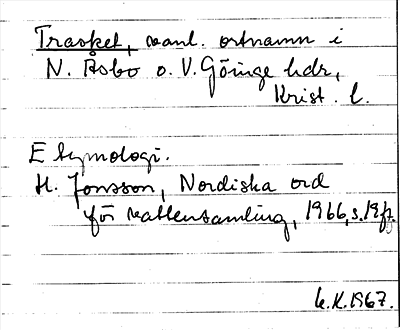 Trasket, vanl. ortnamn i
N. Åsbo o. V. Göinge hdr,
Krist. l.
Etymologi.
H. Jonsson, Nordiska ord
för vattensamling, 1966, s. 19 f.
k.K. 1967.